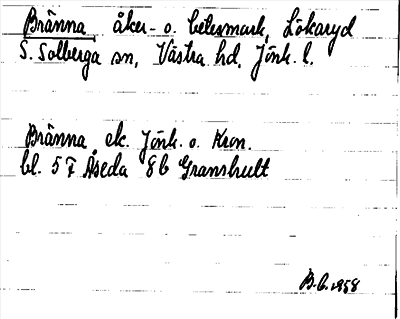 Bränna åker- o. betesmark, Lökaryd
S. Solberga sn, Västra hd, Jönk. l.
Bränna ek. Jönk. o. Kron.
bl. 5 F Åseda 8b Granshult
B.G. 1958